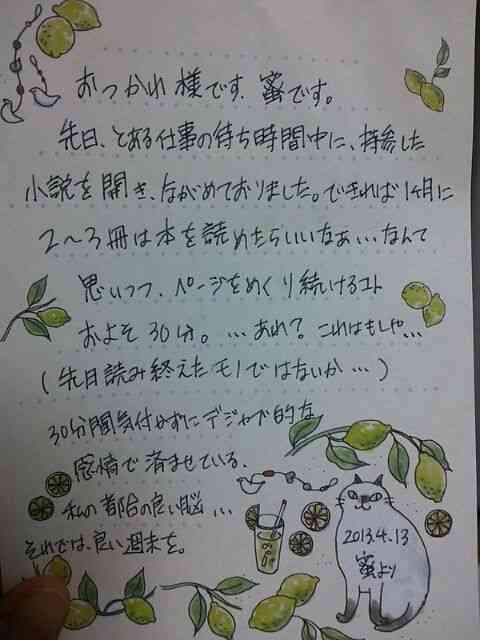 おつかれ様です、蜜です。
先日、とある仕事の待ち時間中に、持参した
小説を開き、ながめておりました。できれば1ヶ月に
2〜3冊は本を読めたらいいなぁ…なんて
思いつつ、ページをめくり続けるコト
およそ30分。…あれ？これはもしや…
(先日読み終えたモノではないか…)
30分間気付かずにデジャヴ的な
感情で済ませている、
私の都合の良い脳…
それでは、良い週末を。
2013.4.13
蜜より